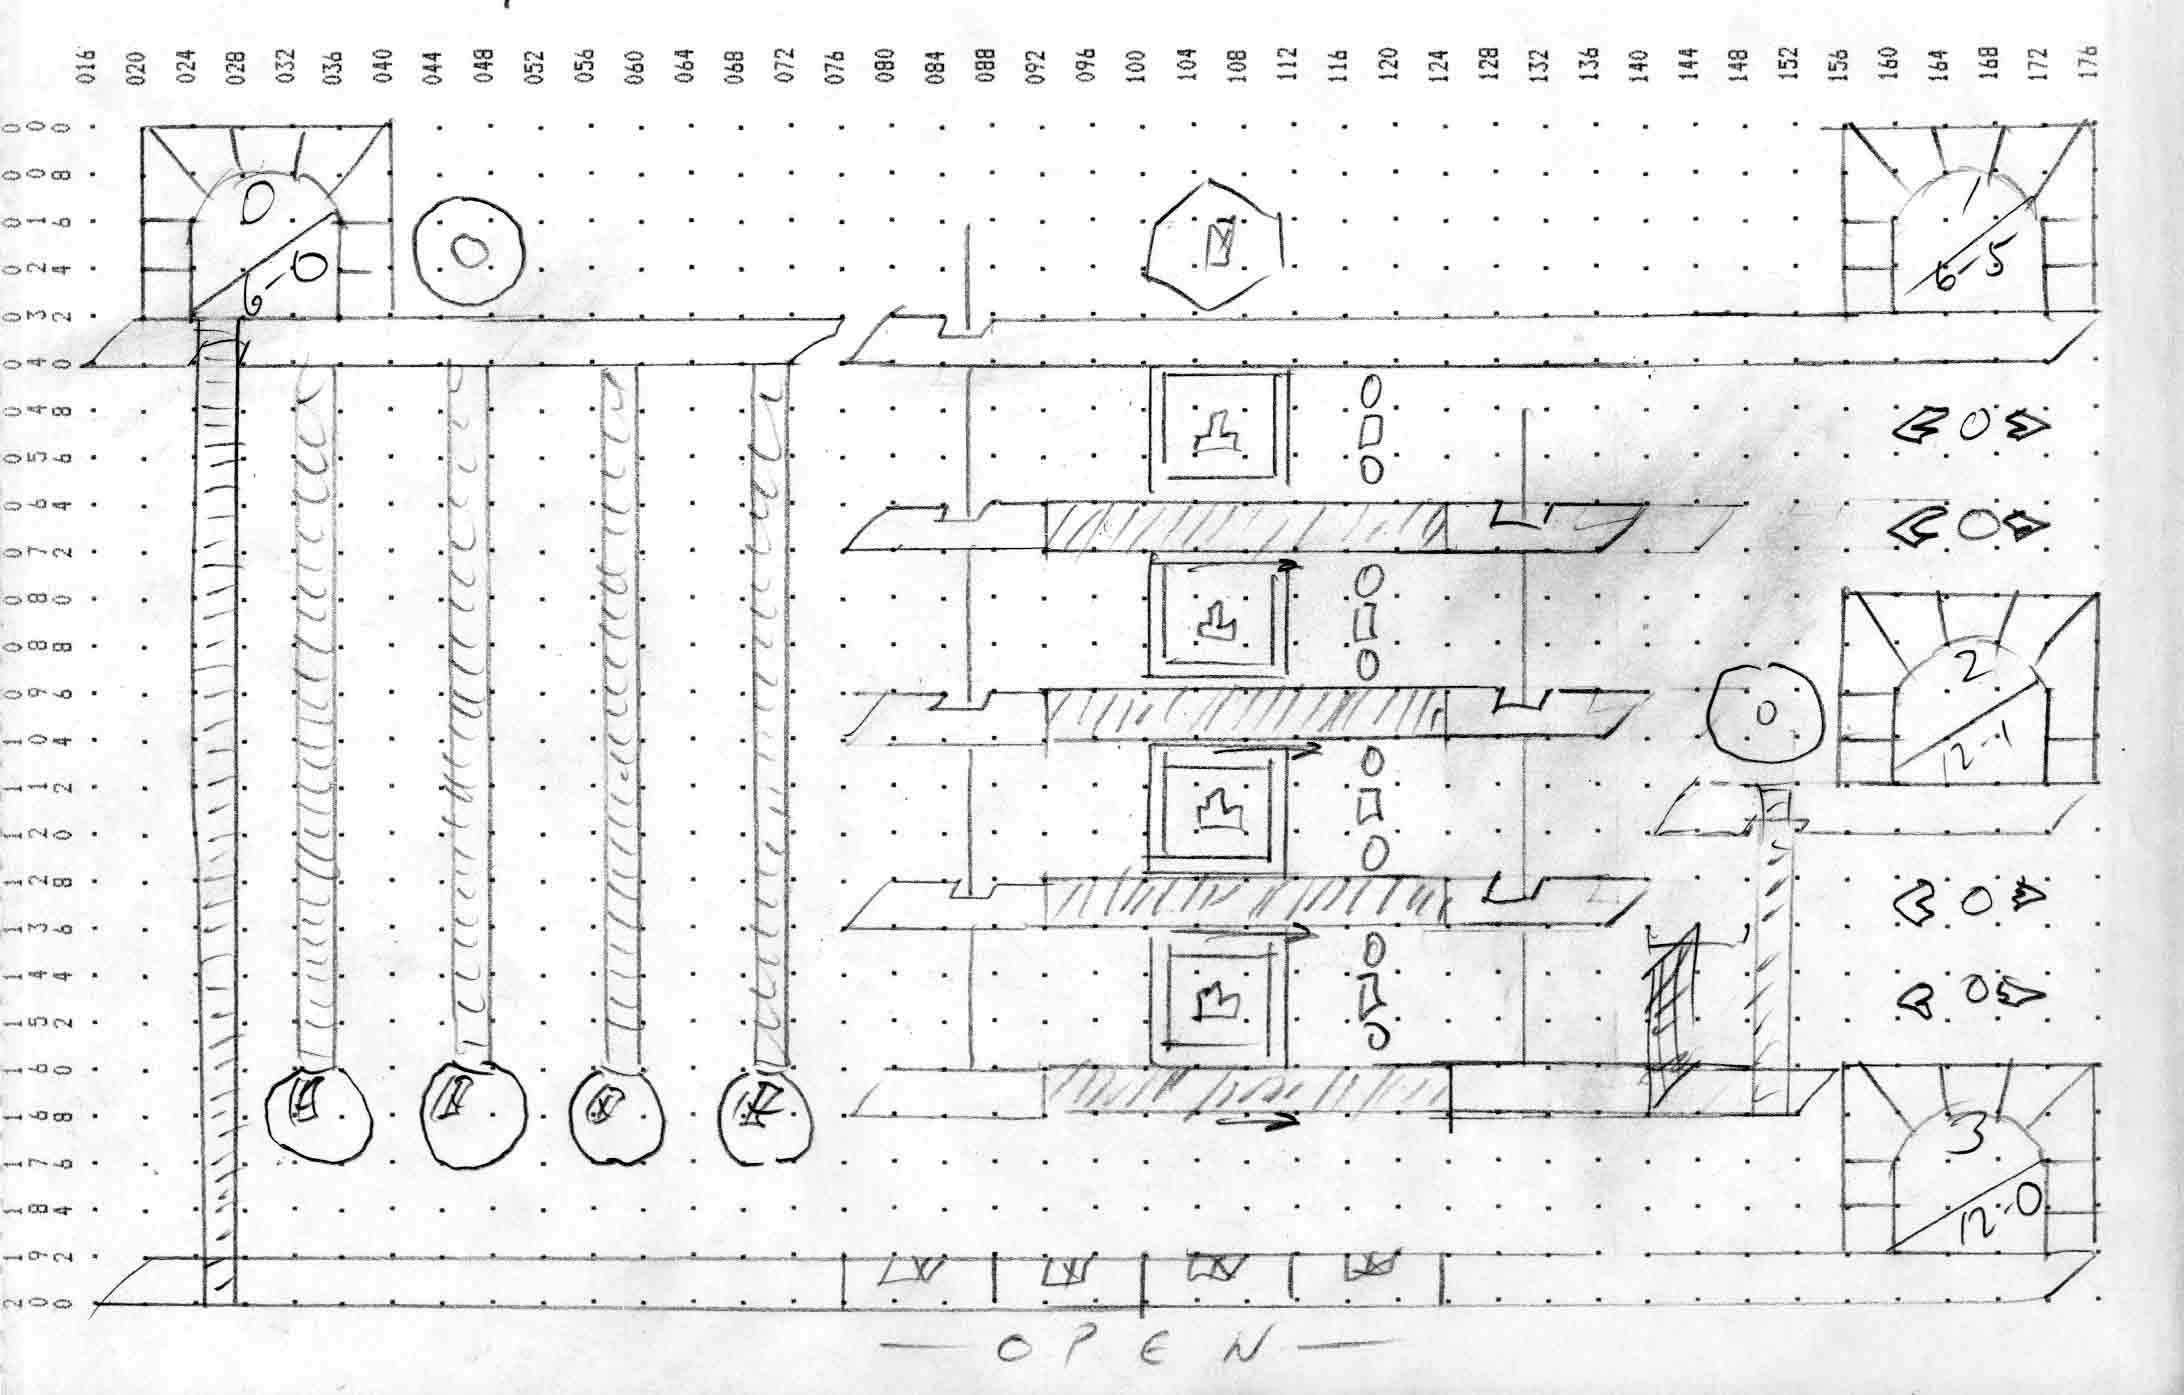 016 020 024 028 032 036 040 044 048 052 056 060 064 068 072 076 080 084 088 092 096 100 104 108 112 116 120 124 128 132 136 140 144 148 152 156 160 164 168 172 176
000
008
0 1
016
6-0 0 6-5
024
032
040
048
0 0
056
064
0 0
072
080
088
2
096
0
104
12-1
112
120
128
0 0
136
144
0 0
152
160
168
3
176
184
12-0
192
200
— OPEN —